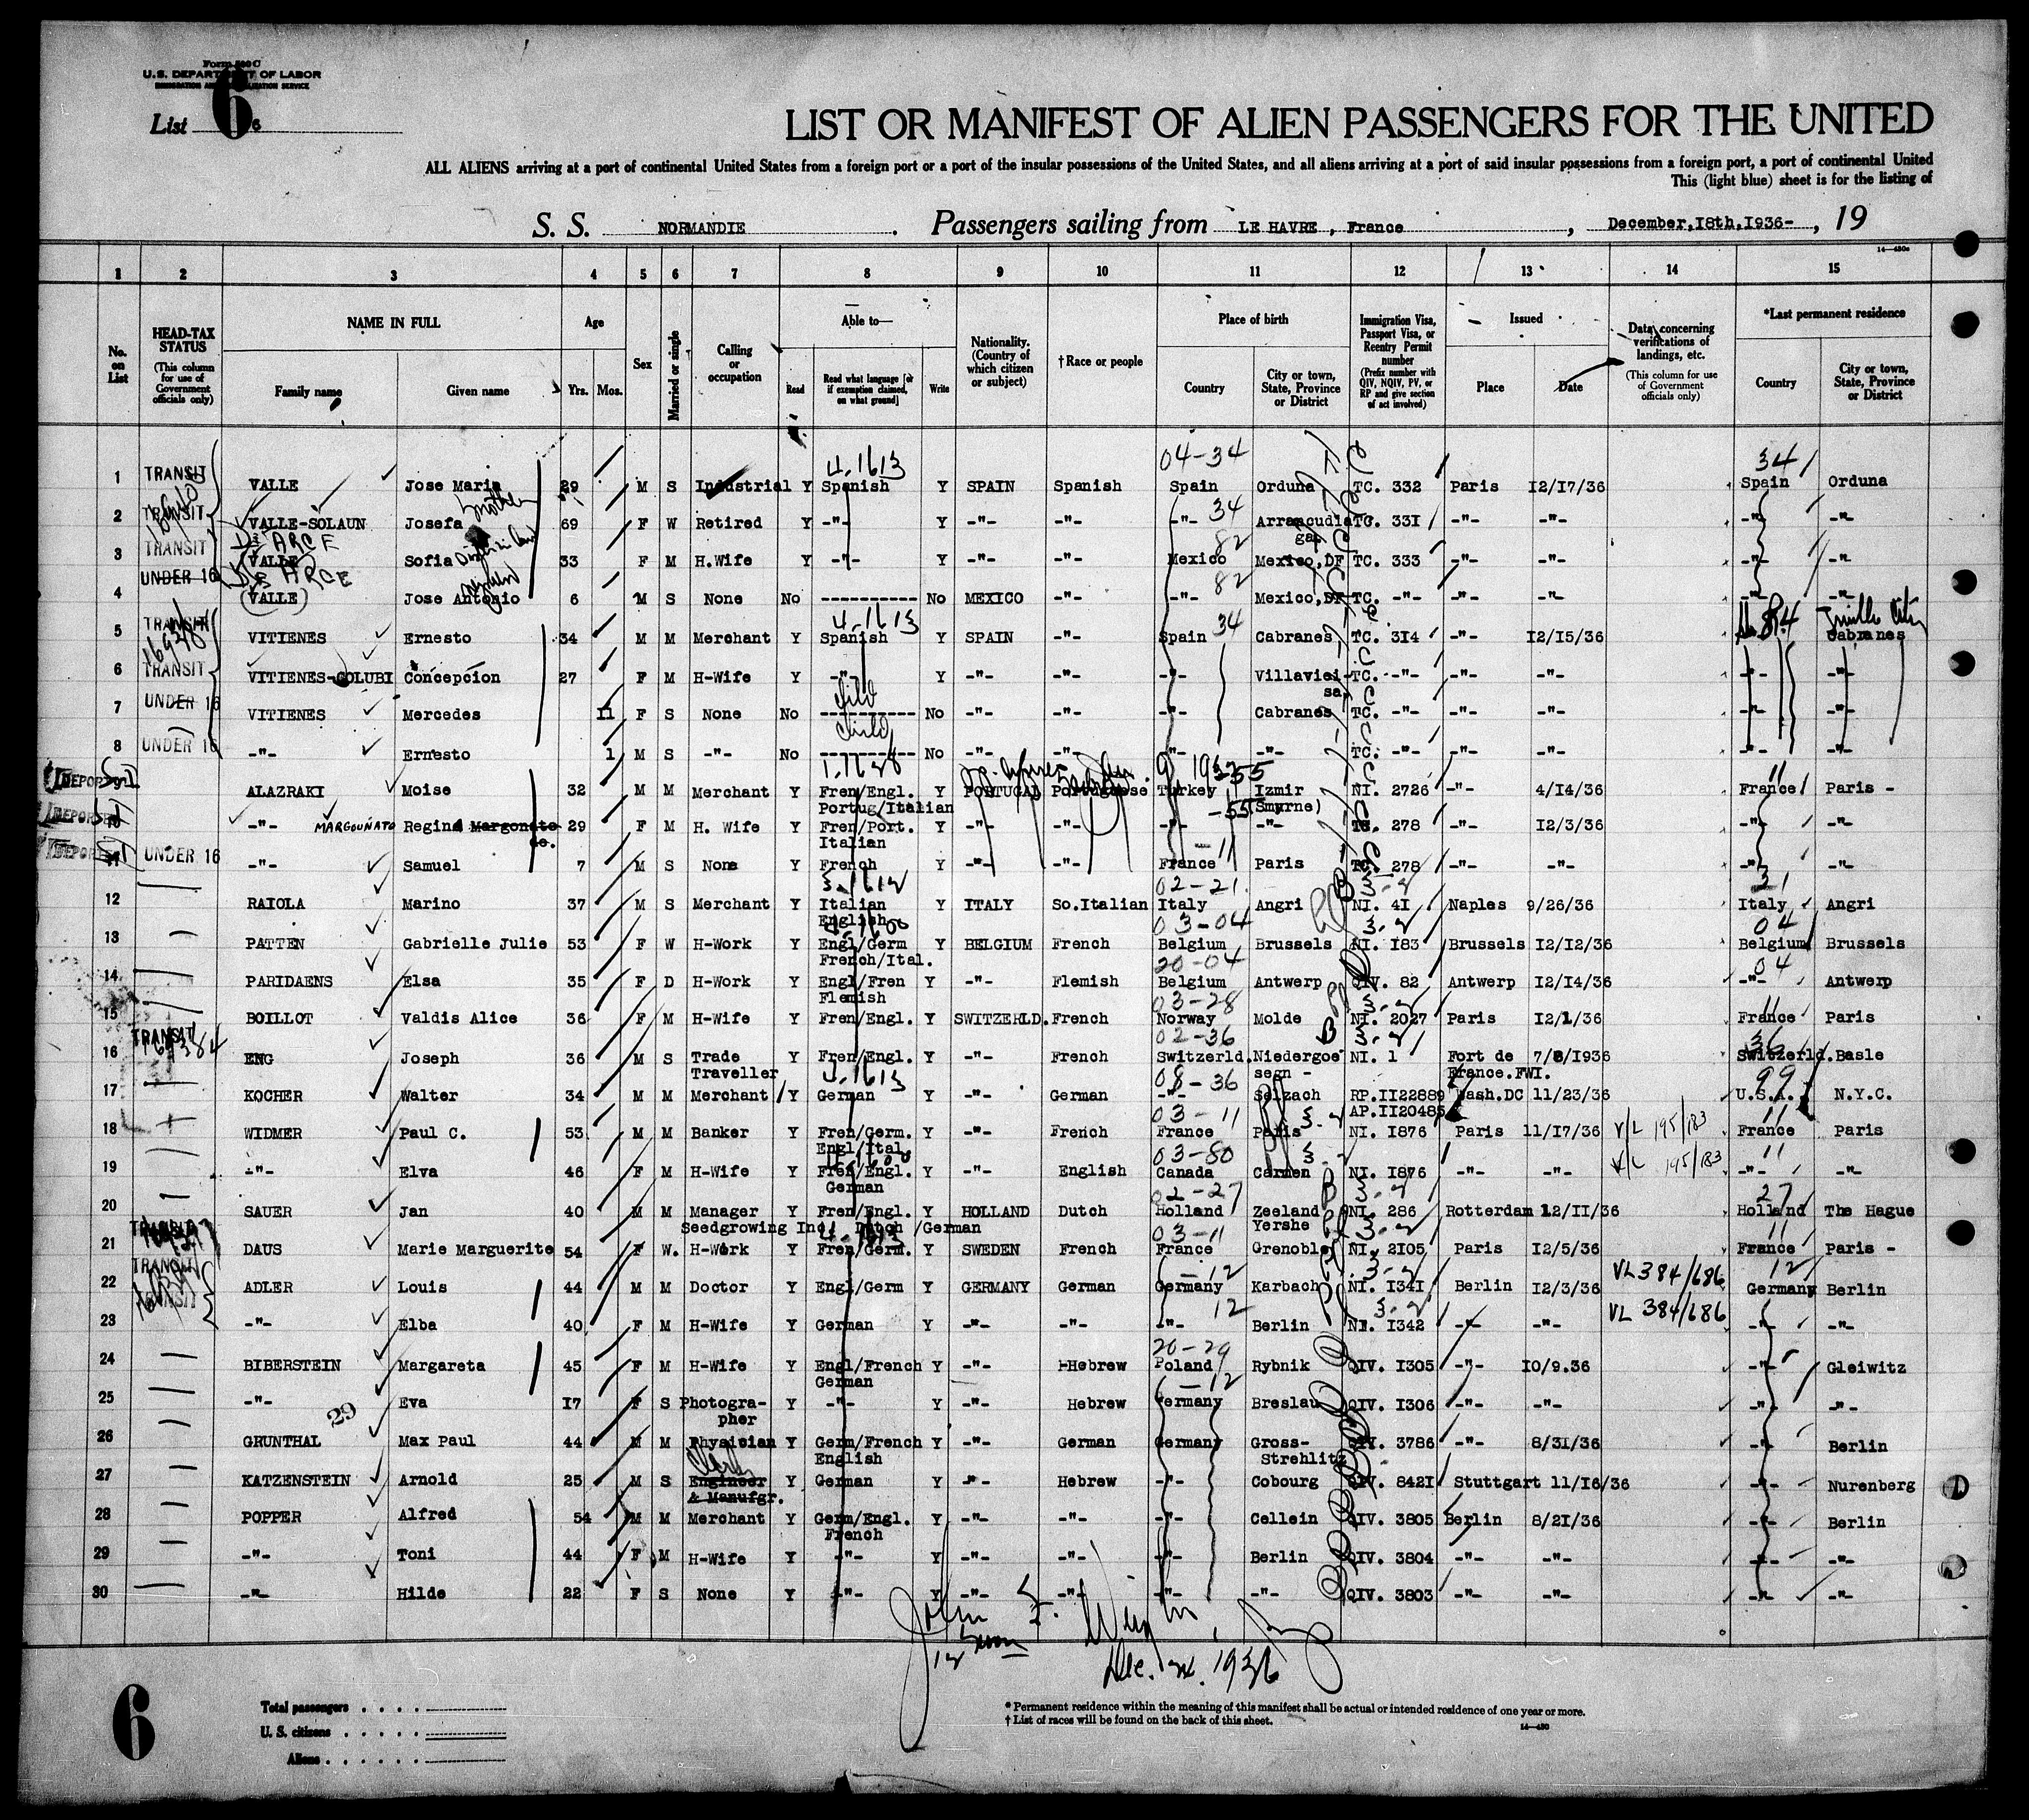 Form 500 C
U.S. DEPARTMENT OF LABOR
IMMIGRATION AND NATURALIZATION SERVICE
List 6
6
LIST OR MANIFEST OF ALIEN PASSENGERS FOR THE UNITED
ALL ALIENS arriving at a port of continental United States from a foreign port or a port of the insular possessions of the United States, and all aliens arriving at a port of said insular possessions from a foreign port, a port of continental United
This (light blue) sheet is for the listing of
S. S. NORMANDIE. Passengers sailing from LE HAVRE, France, December,18th,1936-, 19
14—480a
1 2 3 4 5 6 7 8 9 10 11 12 13 14 15
No. on List
HEAD-TAX STATUS (This column for use of Government officials only)
NAME IN FULL
Family name Given name
Age
Yrs. Mos.
Sex
Married or single
Calling or occupation
Able to—
Read Read what language [or if exemption claimed, on what ground] Write
Nationality. (Country of which citizen or subject)
†Race or people
Place of birth
Country City or town, State, Province or District
Immigration Visa, Passport Visa, or Reentry Permit number (Prefix number with QIV, NQIV, PV, or RP and give section of act involved)
Issued
Place Date
Data concerning verifications of landings, etc. (This column for use of Government officials only)
*Last permanent residence
Country City or town, State, Province or District
4-1613 04-34 34
1 TRANSIT VALLE Jose Maria 29 M S Industrial Y Spanish Y SPAIN Spanish Spain Orduna TC. 332 Paris 12/17/36 Spain Orduna
mother 34
2 TRANSIT VALLE-SOLAUN Josefa 69 F W Retired Y -"- Y -"- -"- -"- TC. 331 -"- -"- -"- -"-
DE ARCE 82
3 TRANSIT (VALLE) Sofia 33 F M H.Wife Y -"- Y -"- -"- Mexico Mexico,DF TC. 333 -"- -"- -"- -"-
DE ARCE 82
4 UNDER 16 (VALLE) Jose Antonio 6 M S None No ---------- No MEXICO -"- -"- Mexico,DF TC. -"- -"- -"- -"- -"-
4-1613 34
5 TRANSIT VITIENES Ernesto 34 M M Merchant Y Spanish Y SPAIN -"- Spain Cabranes TC. 314 -"- 12/15/36 Cabranes
6 TRANSIT VITIENES-GOLUBI Concepcion 27 F M H-Wife Y -"- Y -"- -"- -"- Villavici-sa, TC. -"- -"- -"- -"- -"-
child
7 UNDER 16 VITIENES Mercedes 11 F S None No ---------- No -"- -"- -"- Cabranes TC. -"- -"- -"- -"- -"-
child
8 UNDER 16 -"- Ernesto 1 M S -"- No ---------- No -"- -"- -"- -"- TC. -"- -"- -"- -"- -"-
DEPORTED ALAZRAKI Moise 32 M M Merchant Y Fren/Engl. Y PORTUGAL Portuguese Turkey Izmir NI. 2726 -"- 4/14/36 France Paris -
Portug/Italian (Smyrne)
DEPORTED 10 -"- MARGOUNATO Regina Margonato 29 F M H. Wife Y Fren/Port. Y -"- -"- -"- -"- 278 -"- 12/3/36 -"- -"-
de. Italian
DEPORTED 11 UNDER 16 -"- Samuel 7 M S None Y French Y -"- -"- France Paris TC. 278 -"- -"- -"- -"-
02-21 21
12 RAIOLA Marino 37 M S Merchant Y Italian Y ITALY So.Italian Italy Angri NI. 41 Naples 9/26/36 Italy Angri
English 03-04 04
13 PATTEN Gabrielle Julie 53 F W H-Work Y Engl/Germ Y BELGIUM French Belgium Brussels NI. 183 Brussels 12/12/36 Belgium Brussels
French/Ital. 20-04 04
14 PARIDAENS Elsa 35 F D H-Work Y Engl/Fren Y -"- Flemish Belgium Antwerp QIV. 82 Antwerp 12/14/36 -"- Antwerp
Flemish 03-28
15 BOILLOT Valdis Alice 36 F M H-Wife Y Fren/Engl. Y SWITZERLD. French Norway Molde NI. 2027 Paris 12/1/36 France Paris
02-36 36
16 TRANSIT ENG Joseph 36 M S Trade Traveller Y Fren/Engl. Y -"- French Switzerld. Niedergoe segn - NI. 1 Fort de France.FWI. 7/8/1936 Switzerld. Basle
4-1613 08-36 99
17 KOCHER Walter 34 M M Merchant Y German Y -"- German -"- Selzach RP.1122889 Wash.DC 11/23/36 U.S.A. N.Y.C.
AP.1120485
03-11 11
18 WIDMER Paul C. 53 M M Banker Y Fren/Germ. Y -"- French France Paris NI. 1876 Paris 11/17/36 V/L 195/183 France Paris
Engl/Ital 03-80 11
19 -"- Elva 46 F M H-Wife Y Fren/Engl. Y -"- English Canada Carmen NI. 1876 -"- -"- V/L 195/183 -"- -"-
German 02-27 27
20 SAUER Jan 40 M M Manager Y Fren/Engl. Y HOLLAND Dutch Holland Zeeland NI. 286 Rotterdam 12/11/36 Holland The Hague
Seedgrowing Ind. Dutch /German Yershe
03-11 11
21 TRANSIT DAUS Marie Marguerite 54 F W. H-Work Y Fren/Germ. Y SWEDEN French France Grenoble NI. 2105 Paris 12/5/36 France Paris -
12 12
22 TRANSIT ADLER Louis 44 M M Doctor Y Engl/Germ Y GERMANY German Germany Karbach NI. 1341 Berlin 12/3/36 VL 384/686 Germany Berlin
12
23 TRANSIT -"- Elba 40 F M H-Wife Y German Y -"- -"- -"- Berlin NI. 1342 -"- -"- VL 384/686 -"- -"-
20-29
24 BIBERSTEIN Margareta 45 F M H-Wife Y Engl/French Y -"- Hebrew Poland Rybnik QIV. 1305 -"- 10/9.36 -"- Gleiwitz
German 12
25 -"- Eva 17 F S Photogra-pher Y -"- Y -"- Hebrew Germany Breslau QIV. 1306 -"- -"- -"- -"-
29
26 GRUNTHAL Max Paul 44 M M Physician Y Germ/French Y -"- German Germany Gross-Strehlitz QIV. 3786 -"- 8/31/36 -"- Berlin
English
Clerk
27 KATZENSTEIN Arnold 25 M S Engineer & Manufgr. Y German Y -"- Hebrew -"- Cobourg QIV. 8421 Stuttgart 11/16/36 -"- Nurenberg
28 POPPER Alfred 54 M M Merchant Y Germ/Engl. Y -"- -"- -"- Cellein QIV. 3805 Berlin 8/21/36 -"- Berlin
French
29 -"- Toni 44 F M H-Wife Y -"- Y -"- -"- -"- Berlin QIV. 3804 -"- -"- -"- -"-
30 -"- Hilde 22 F S None Y -"- Y -"- -"- -"- -"- QIV. 3803 -"- -"- -"- -"-
John
Dec. 1936
6
Total passengers
U. S. citizens
Aliens
* Permanent residence within the meaning of this manifest shall be actual or intended residence of one year or more.
† List of races will be found on the back of this sheet.
14—480